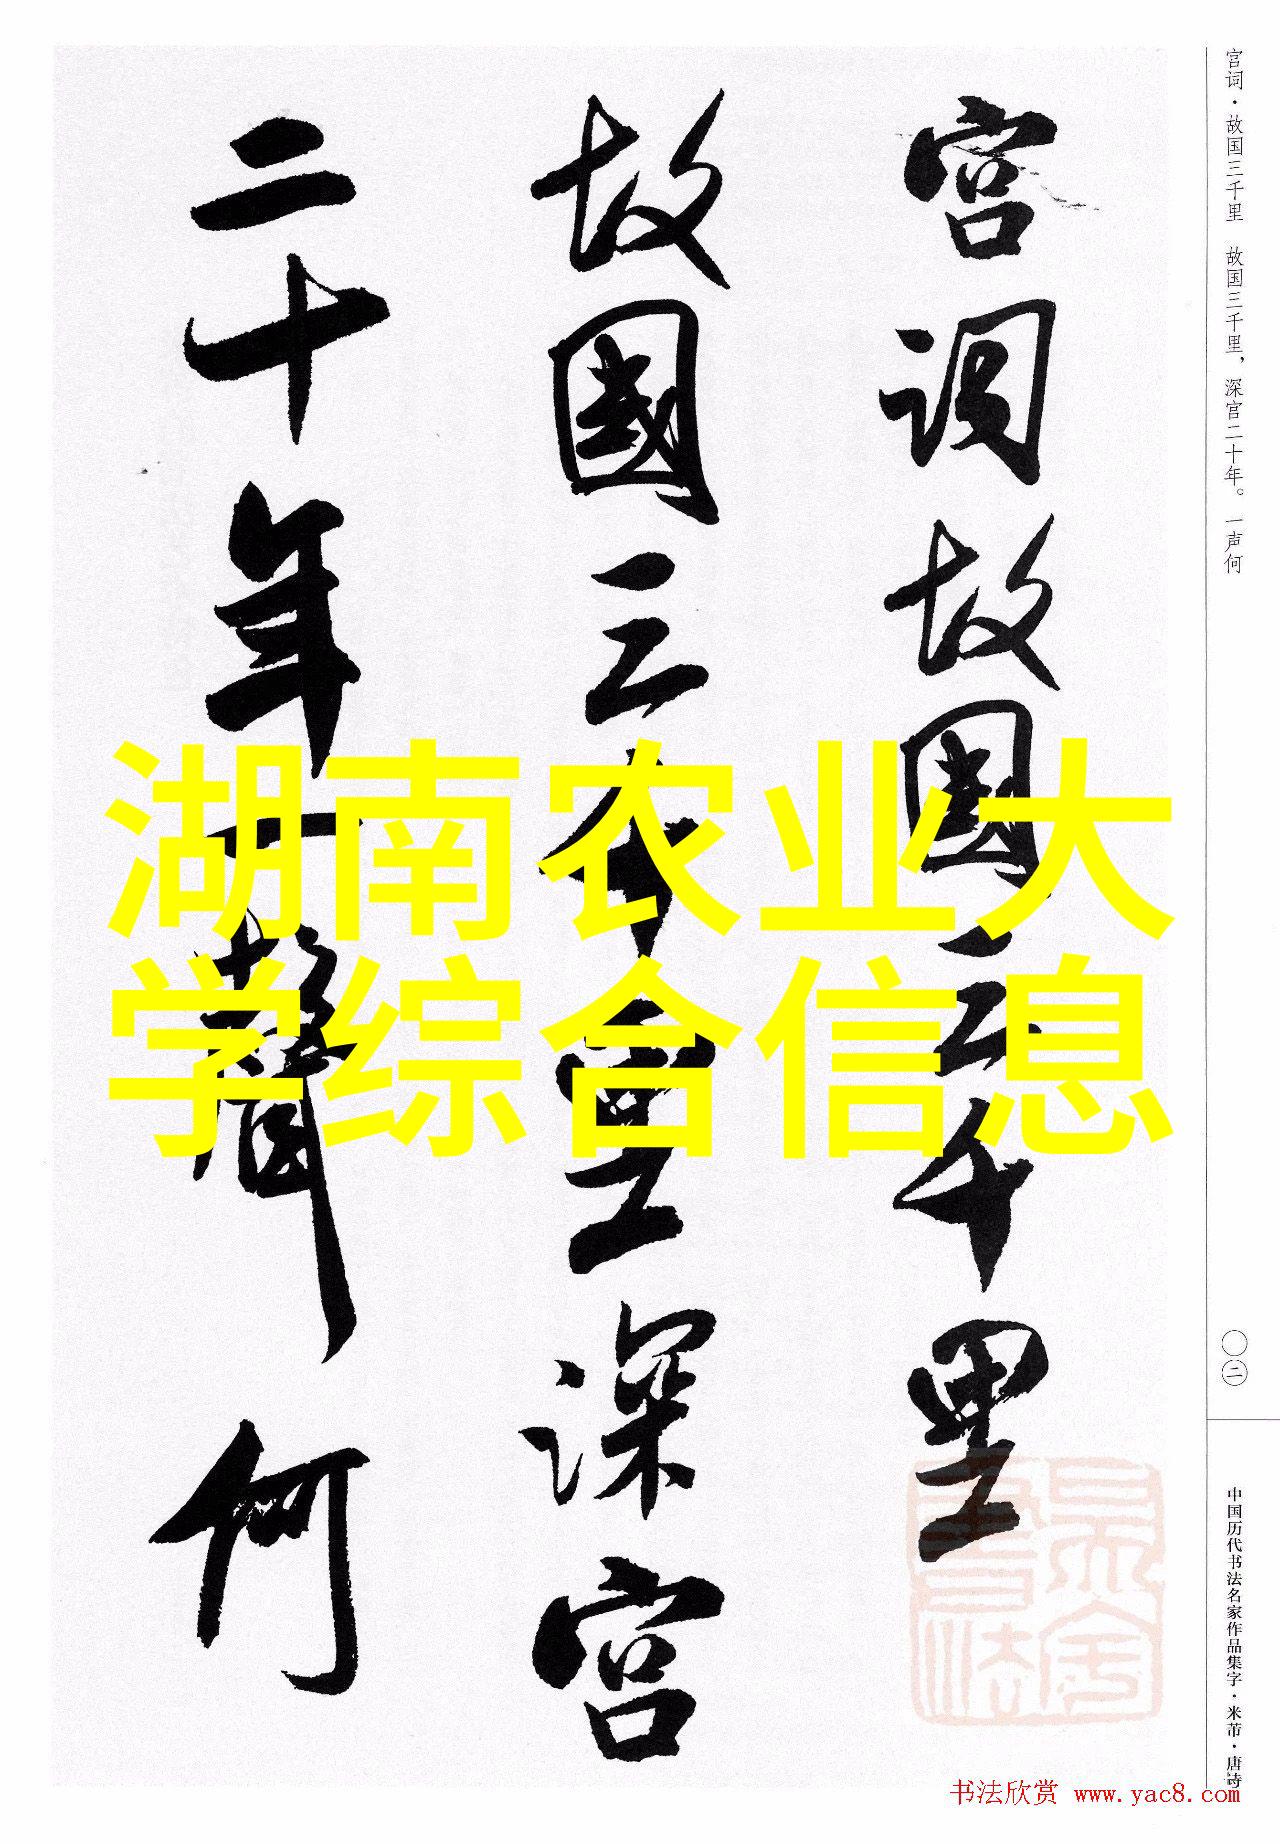 宫词故國三千里
故國三千里深宫
二十年一聲何
湖南农业大
学综合信息
宫词·故国三千里 故国三千里，深宫二十年。一声何
〇二
中国历代书法名家作品集字·米芾·唐诗
书法欣赏 www.yac8.com